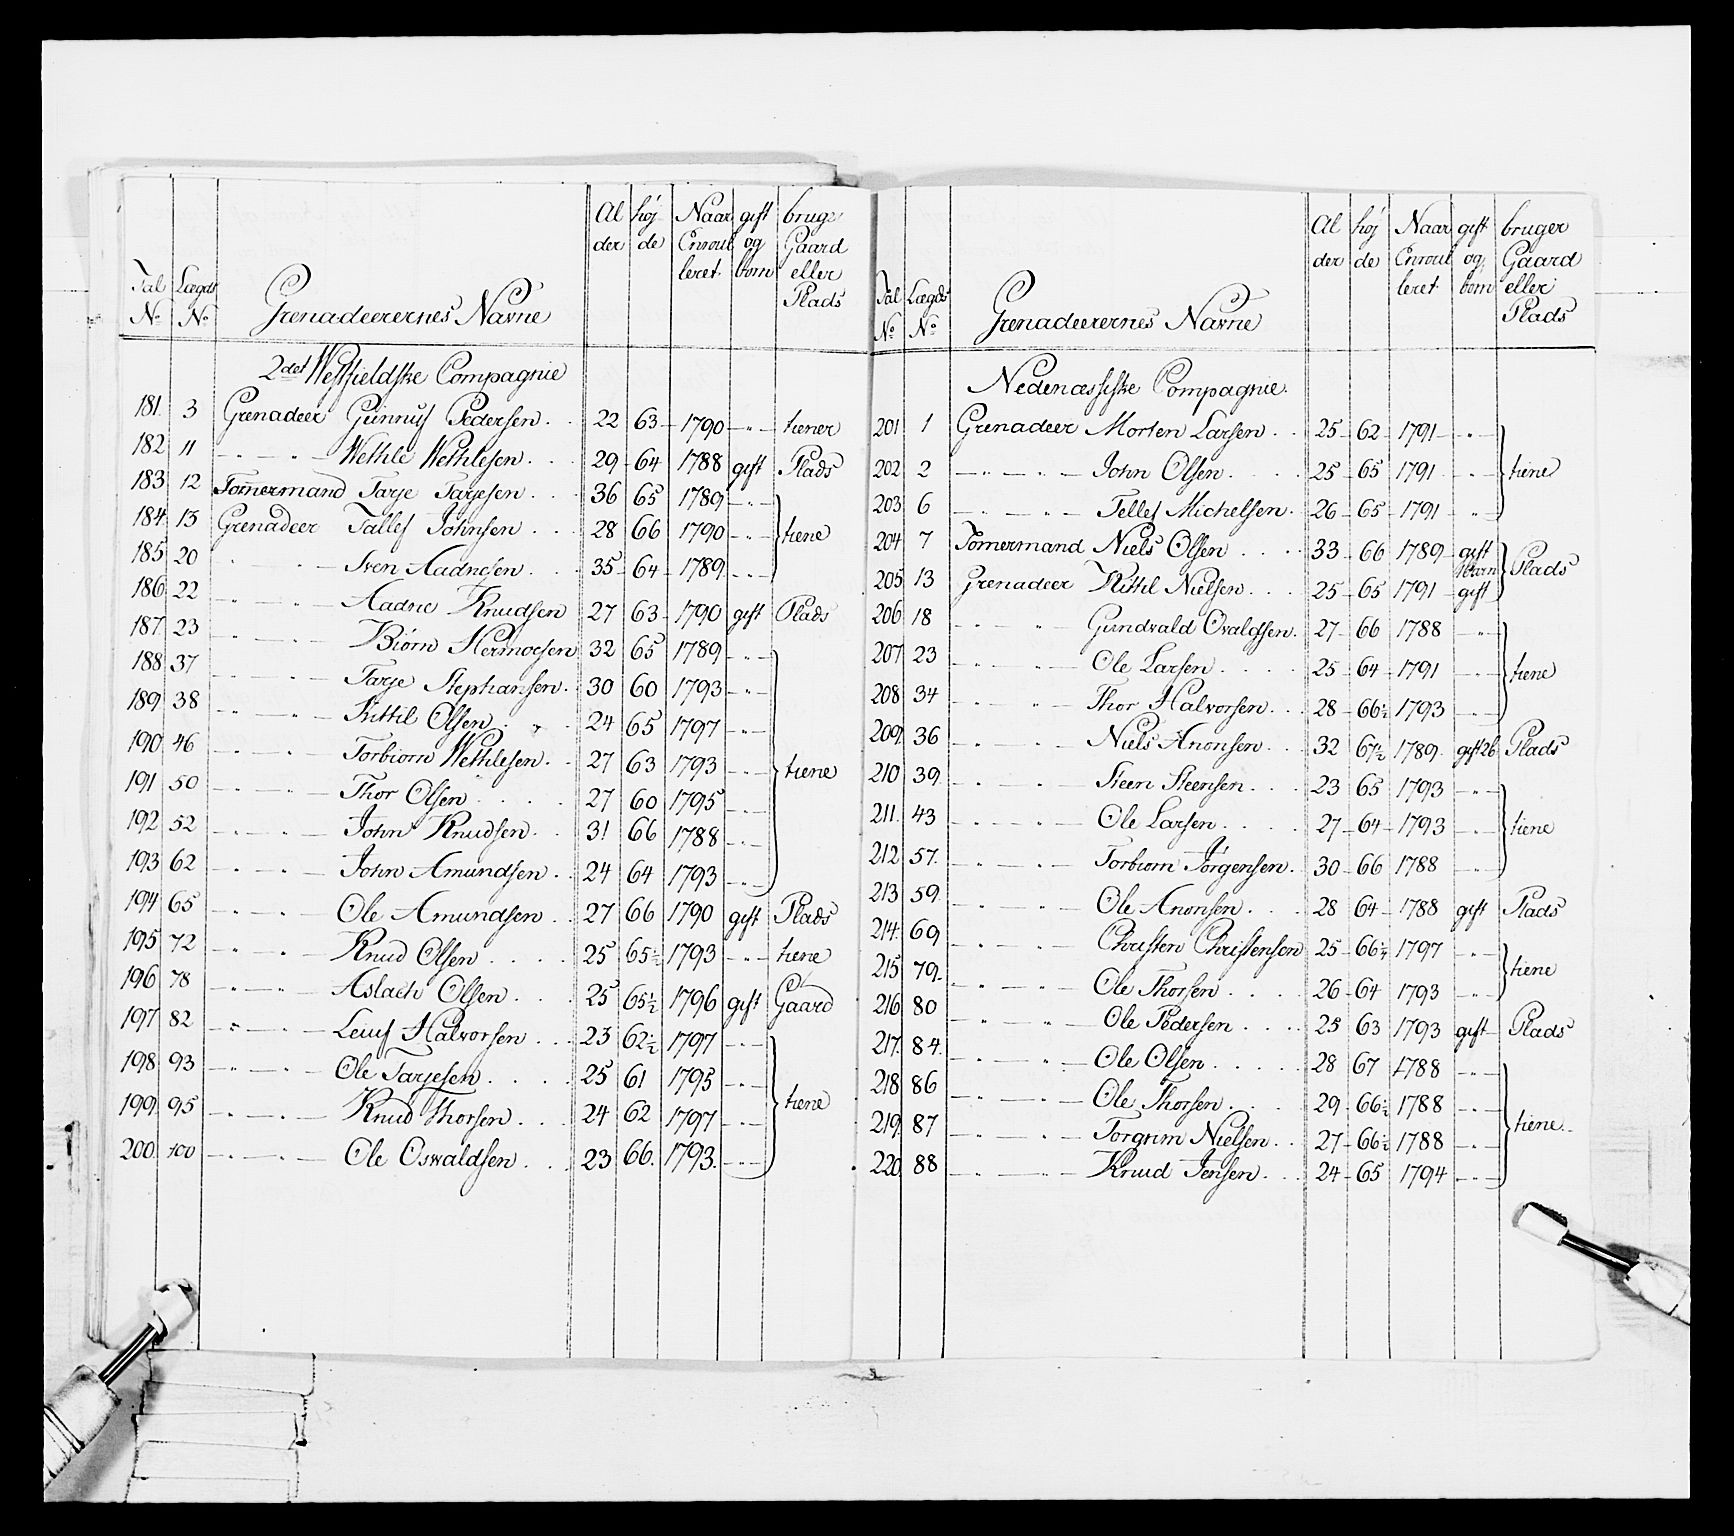 Tal No | Lægds No | Grenadeerernes Navne | Al der | høj de | Naar Enroul leret | gift og børn | bruger Gaard eller Plads
2det Westfieldske Compagnie
181 3 Grenadeer Gunnuf Pedersen 22 63 1790 -"- tiener
182 11 -"- Wethle Wethlesen 29 64 1788 gift Plads
183 12 Tømermand Tarje Tarjesen 36 65 1789 -"-
184 13 Grenadeer Tallef Johnsen 28 66 1790 -"- tiene
185 20 -"- Sven Aadnesen 35 64 1789 -"-
186 22 -"- Aadne Knudsen 27 63 1790 gift Plads
187 23 -"- Biørn Hermoesen 32 65 1789 -"-
188 37 -"- Tarje Stephansen 30 60 1793 -"-
189 38 -"- Kittil Olsen 24 65 1797 -"-
190 46 -"- Torbiorn Wethlesen 27 63 1793 -"- tiene
191 50 -"- Thor Olsen 27 60 1795 -"-
192 52 -"- John Knudsen 31 66 1788 -"-
193 62 -"- John Amundsen 24 64 1793 -"-
194 65 -"- Ole Amundsen 27 66 1790 gift Plads
195 72 -"- Knud Olsen 25 65½ 1793 -"- tiene
196 78 -"- Aslach Olsen 25 65½ 1796 gift Gaard
197 82 -"- Leuf Halvorsen 23 62½ 1797 -"-
198 93 -"- Ole Tarjesen 25 61 1795 -"-
199 95 -"- Knud Thorsen 24 62 1797 -"- tiene
200 100 -"- Ole Oswaldsen 23 66 1793 -"-
Tal No | Lægds No | Grenadeerernes Navne | Al der | høj de | Naar Enroul leret | gift og børn | bruger Gaard eller Plads
Nedenæssiske Compagnie
201 1 Grenadeer Morten Larsen 25 62 1791 -"-
202 2 -"- John Olsen 25 65 1791 -"- tiene
203 6 -"- Tellef Michelsen 26 65 1791 -"-
204 7 Tømermand Niels Olsen 33 66 1789 gift Plads
205 13 Grenadeer Kittil Nielsen 25 65 1791 gift
206 18 -"- Gundvald Ovaldsen 27 66 1788 -"-
207 23 -"- Ole Larsen 25 64 1791 -"- tiene
208 34 -"- Thor Halvorsen 28 66½ 1793 -"-
209 36 -"- Niels Anonsen 32 67½ 1789 gift 2b Plads
210 39 -"- Steen Steensen 23 65 1793 -"-
211 43 -"- Ole Larsen 27 64 1793 -"- tiene
212 57 -"- Torbiorn Jørgensen 30 66 1788 -"-
213 59 -"- Ole Anonsen 28 64 1788 gift Plads
214 69 -"- Christen Christensen 25 66½ 1797 -"-
215 79 -"- Ole Thorsen 26 64 1793 -"- tiene
216 80 -"- Ole Pedersen 25 63 1793 gift Plads
217 84 -"- Ole Olsen 28 67 1788 -"-
218 86 -"- Ole Thorsen 29 66½ 1788 -"-
219 87 -"- Torgrim Nielsen 27 66½ 1788 -"- tiene
220 88 -"- Knud Jensen 24 65 1794 -"-